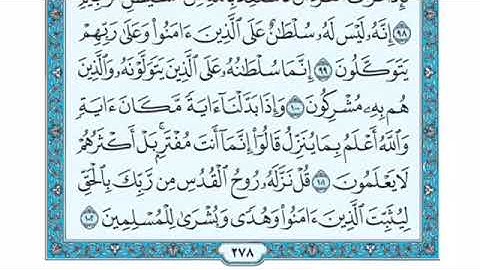 ٩٨ إِنَّهُۥ لَيْسَ لَهُۥ سُلْطَٰنٌ عَلَى ٱلَّذِينَ ءَامَنُوا۟ وَعَلَىٰ رَبِّهِمْ
يَتَوَكَّلُونَ ٩٩ إِنَّمَا سُلْطَٰنُهُۥ عَلَى ٱلَّذِينَ يَتَوَلَّوْنَهُۥ وَٱلَّذِينَ
هُم بِهِۦ مُشْرِكُونَ ١٠٠ وَإِذَا بَدَّلْنَآ ءَايَةً مَّكَانَ ءَايَةٍ
وَٱللَّهُ أَعْلَمُ بِمَا يُنَزِّلُ قَالُوٓا۟ إِنَّمَآ أَنتَ مُفْتَرٍۭ بَلْ أَكْثَرُهُمْ
لَا يَعْلَمُونَ ١٠١ قُلْ نَزَّلَهُۥ رُوحُ ٱلْقُدُسِ مِن رَّبِّكَ بِٱلْحَقِّ
لِيُثَبِّتَ ٱلَّذِينَ ءَامَنُوا۟ وَهُدًى وَبُشْرَىٰ لِلْمُسْلِمِينَ ١٠٢
٢٧٨